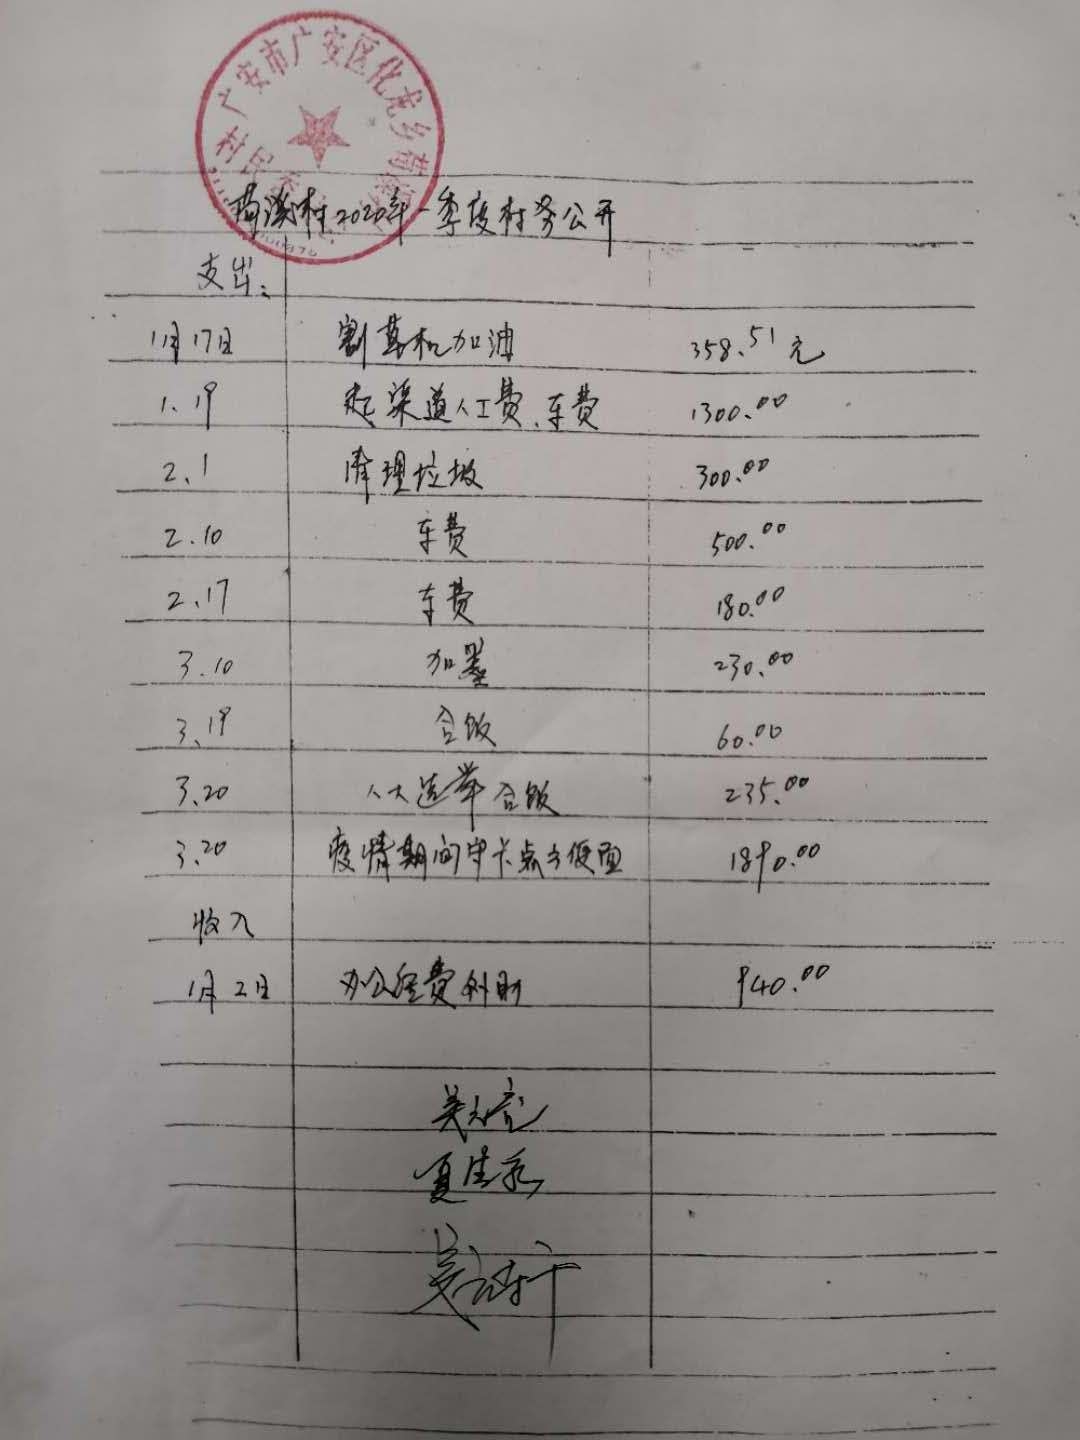 广安市广安区化龙乡
村民
村2020年一季度村务公开
支出:
1月17日 割草机加油 358.51元
1.19 渠道人工费、车费 1300.00
2.1 清理垃圾 300.00
2.10 车费 500.00
2.17 车费 180.00
3.10 加墨 230.00
3.19 合饭 60.00
3.20 人大选举合饭 235.00
3.20 疫情期间守卡点方便面 1890.00
收入
1月2日 办公经费 940.00